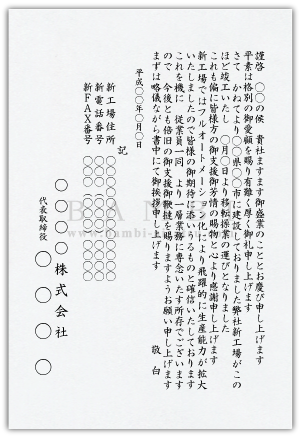 謹啓　〇〇の候　貴社ますます御盛業のこととお慶び申し上げます
平素は格別の御愛顧を賜り有難く厚く御礼申し上げます
さて　かねてより〇〇県〇〇市に建設しておりました弊社新工場がこの
ほど竣工いたし　〇月〇日より移転操業の運びとなりました
これも偏に皆様方の御支援御芳情の賜物と心より感謝申し上げます
新工場ではフルオートメーション化により飛躍的に生産能力が拡大
いたしましたので皆様の御期待に添いうるものと確信いたしております
これを機に　従業員一同　より一層業務に専念いたす所存でございます
ので　今後とも倍旧の御支援御鞭撻を賜りますようお願い申し上げます
まずは略儀ながら書中にて御挨拶申し上げます
敬白
平成〇〇年〇月〇日
記
新工場住所　〇〇〇〇〇〇〇〇〇〇〇
新電話番号　〇〇〇〇〇〇〇〇〇〇〇
新ＦＡＸ番号　〇〇〇〇〇〇〇〇〇〇〇
〇〇〇〇株式会社
代表取締役　〇〇〇〇